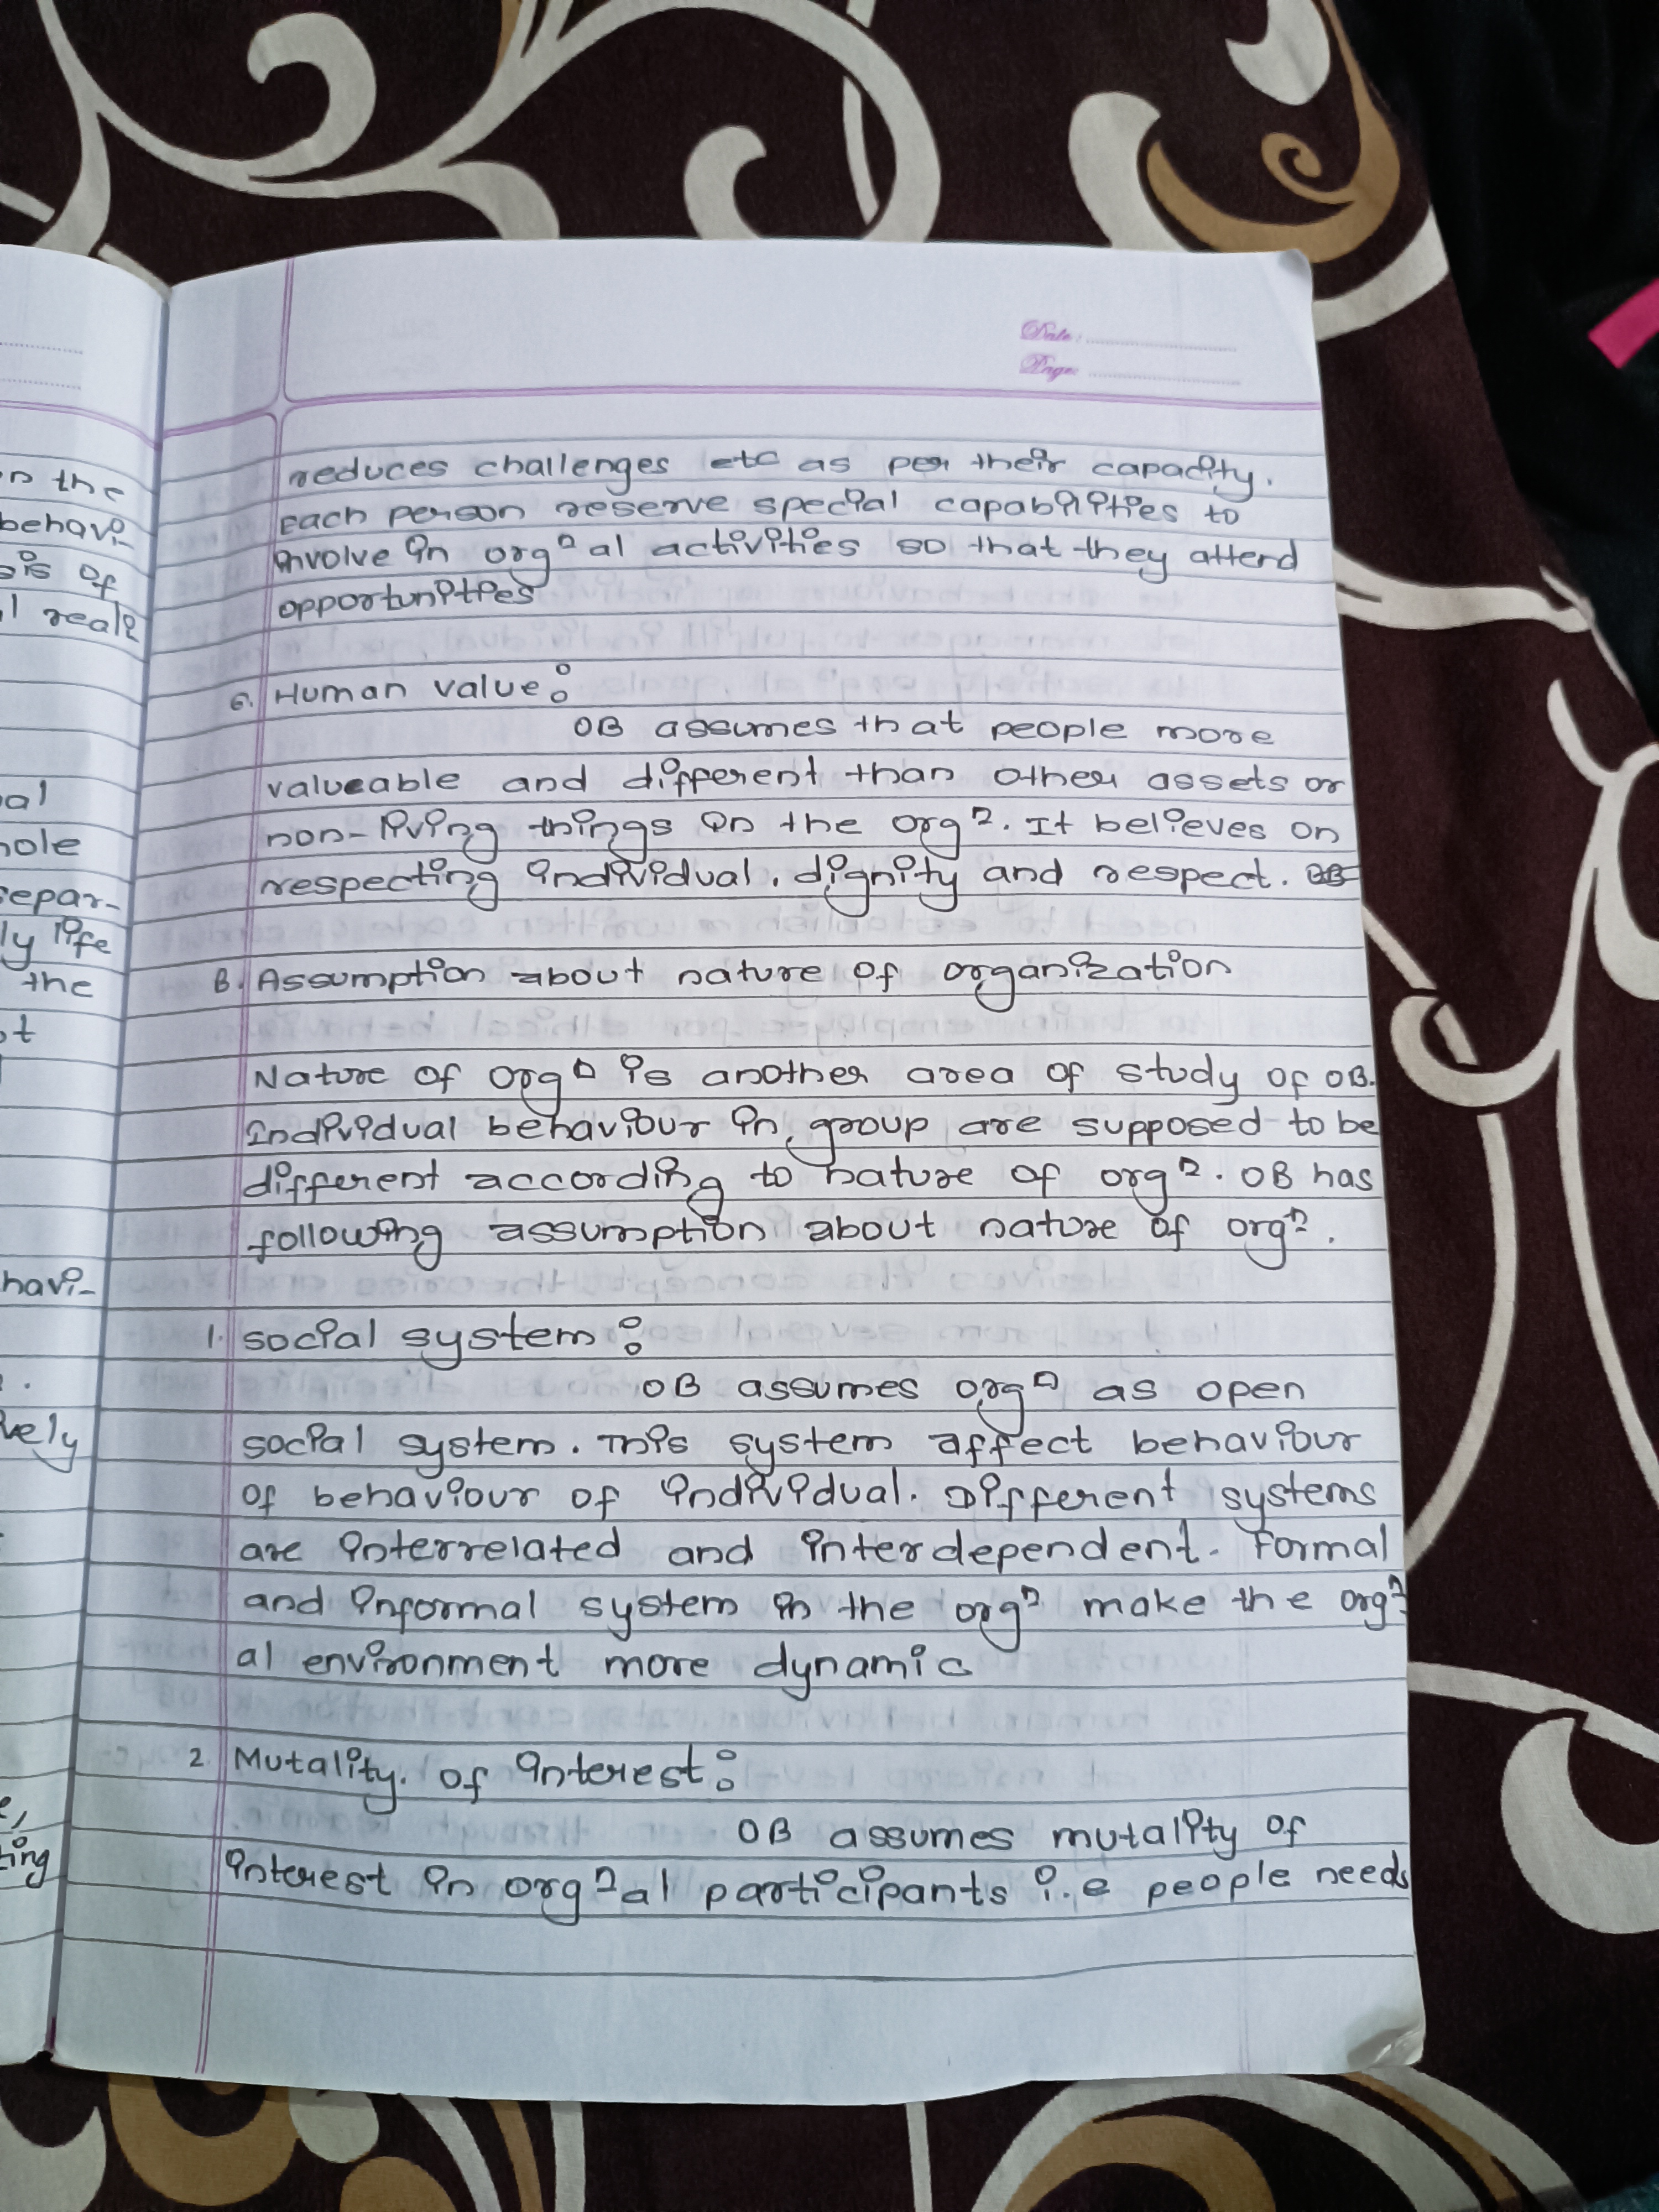 Date:
Page:
n the
behavi-
is of
l reali
al
hole
separ-
ly life
the
ot
havi-
vely
ting
reduces challenges etc as per their capacity.
Each person reserve special capabilities to
involve in orgⁿal activities so that they attend
opportunities
6. Human value:
OB assumes that people more
valueable and different than other assets or
non-living things in the orgⁿ. It believes on
respecting individual, dignity and respect.
B. Assumption about nature of organization
Nature of orgⁿ is another area of study of OB.
Individual behaviour in, group are supposed to be
different according to nature of orgⁿ. OB has
following assumption about nature of orgⁿ.
1. social system:
OB assumes orgⁿ as open
social system. This system affect behaviour
of behaviour of individual. Different systems
are interrelated and interdependent. Formal
and informal system in the orgⁿ make the orgⁿ
al environment more dynamic
2. Mutality. of interest:
OB assumes mutality of
interest in orgⁿal participants i.e people needs